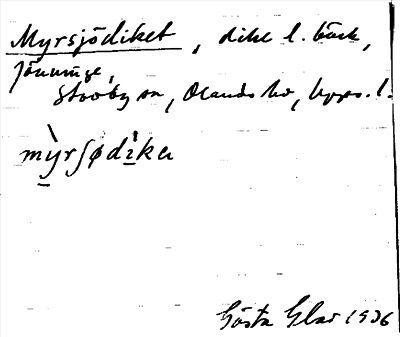 Myrsjödiket, dike l. bäck,
Jönninge,
Skoby sn, Olands hd, Upps. l.
mỳrʃødi̊ka
Gösta Glas 1936